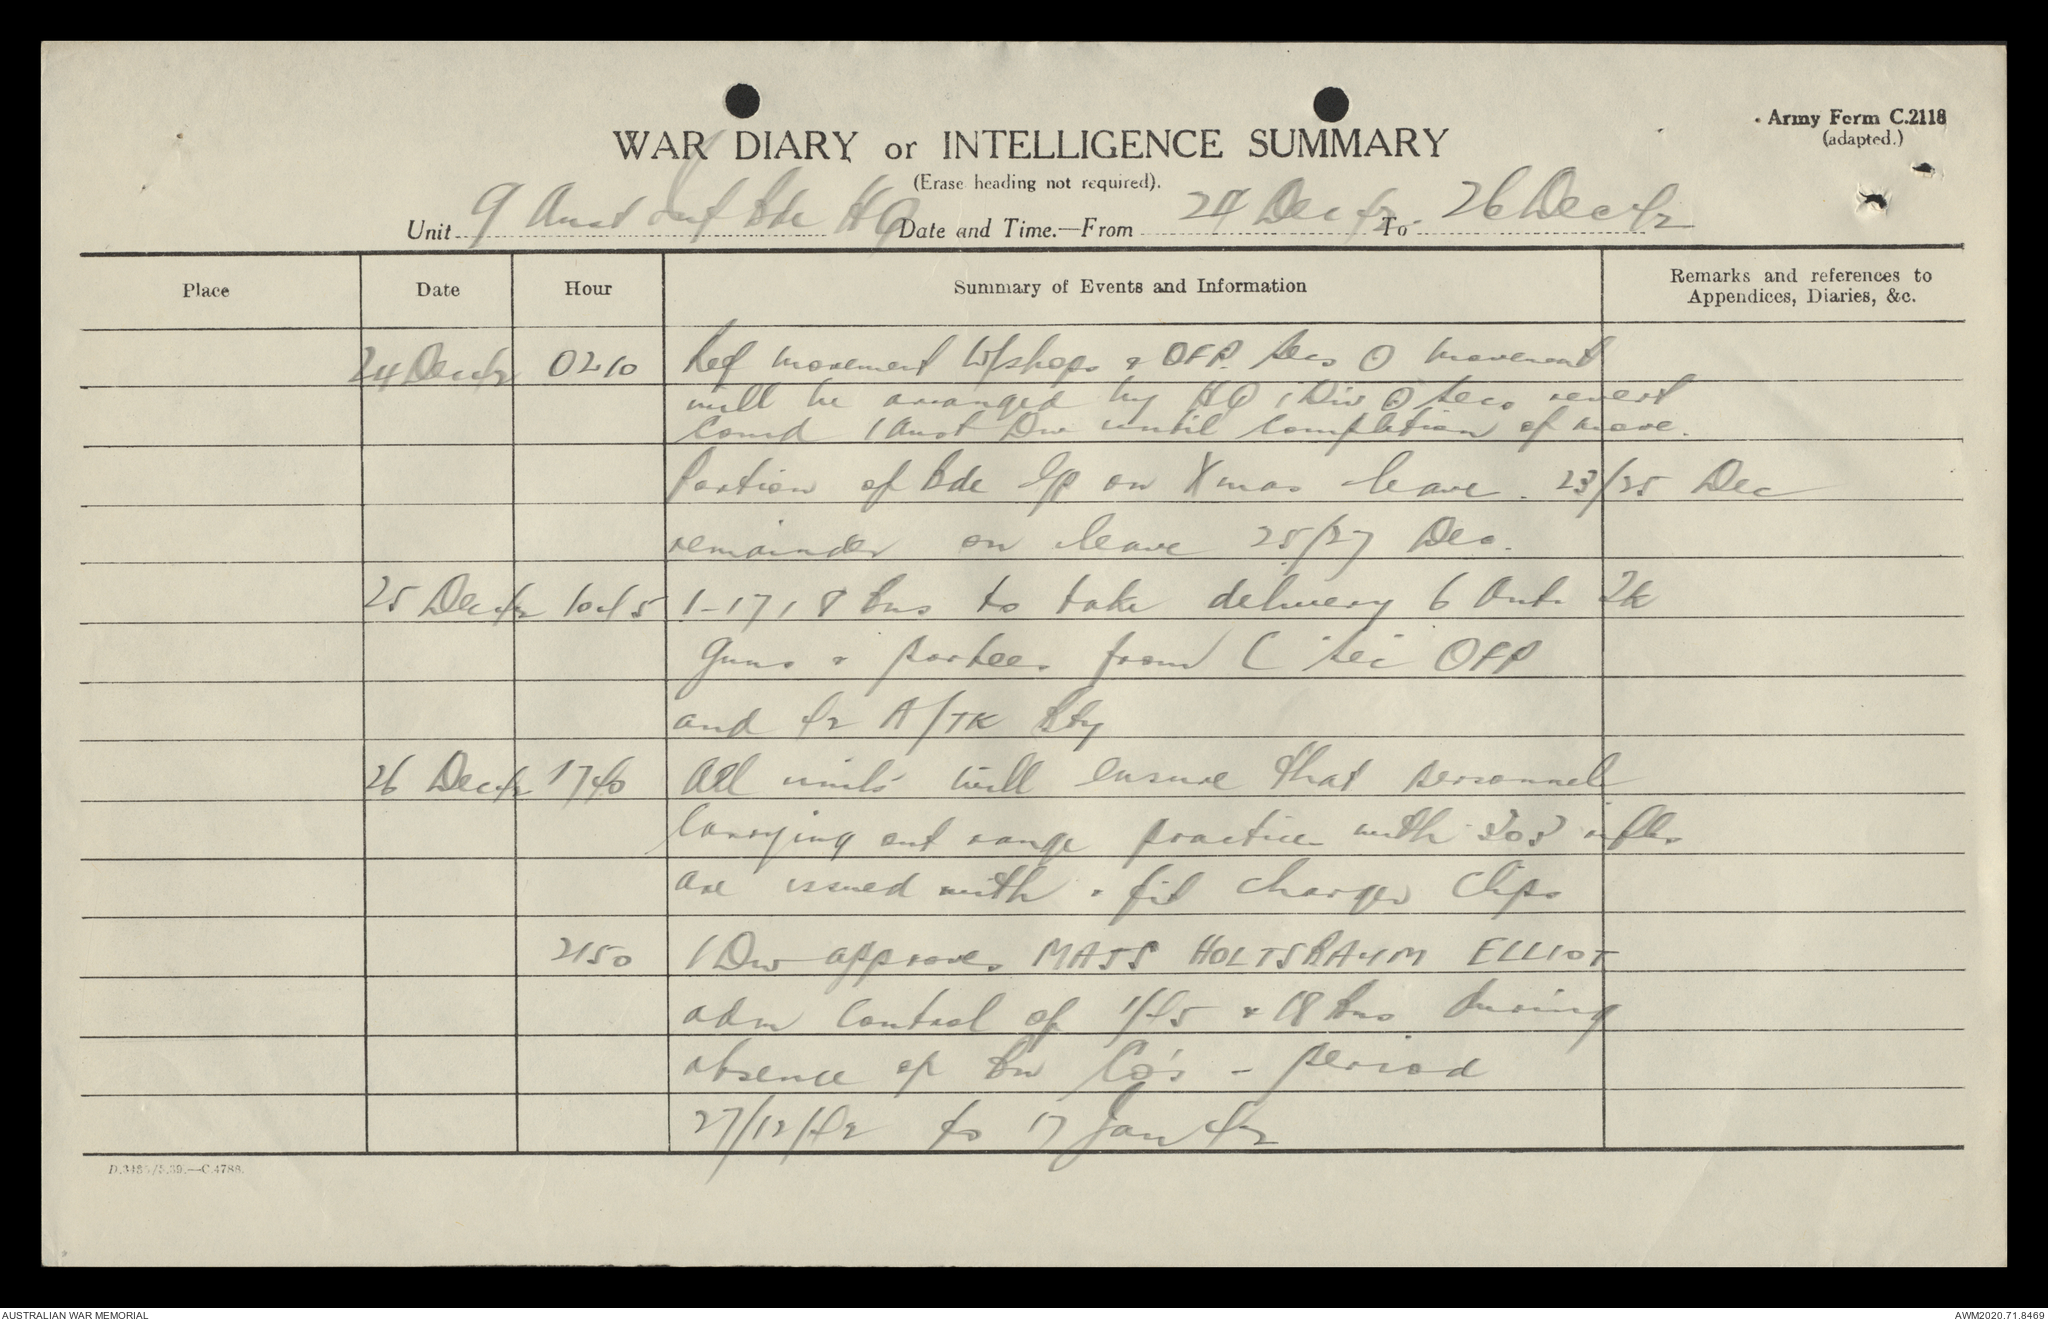 Army Form C.2118
(adapted.)
WAR DIARY or INTELLIGENCE SUMMARY
(Erase heading not required).
Unit 9 Aust Inf Bde HQ Date and Time.—From 24 Dec 42. To 26 Dec 42
Place Date Hour Summary of Events and Information Remarks and references to
Appendices, Diaries, &c.
24 Dec 42 0210 Ref movement W/shops & OFP. Secs movement
will be arranged by HQ 1 Div Secs revert
Comd 1 Aust Div until completion of move.
Portion of Bde Gp on Xmas leave. 23/25 Dec
remainder on leave 25/27 Dec.
25 Dec 42 1045 1-17, 18 Bns to take delivery 6 Anti Tk
guns & portees from C Sec OFP
and 42 A/TK Bty
26 Dec 42 1740 All units will ensure that personnel
carrying out range practice with 303 rifles
are issued with & fil charger clips
2150 1 Div approves MAJS HOLTSBAUM ELLIOT
adm control of 1/45 & 18 Bns during
absence of Bn Co's - period
27/12/42 to 17 Jan 42
D.3486/5.39.—C.4788.
AUSTRALIAN WAR MEMORIAL AWM2020.71.8469